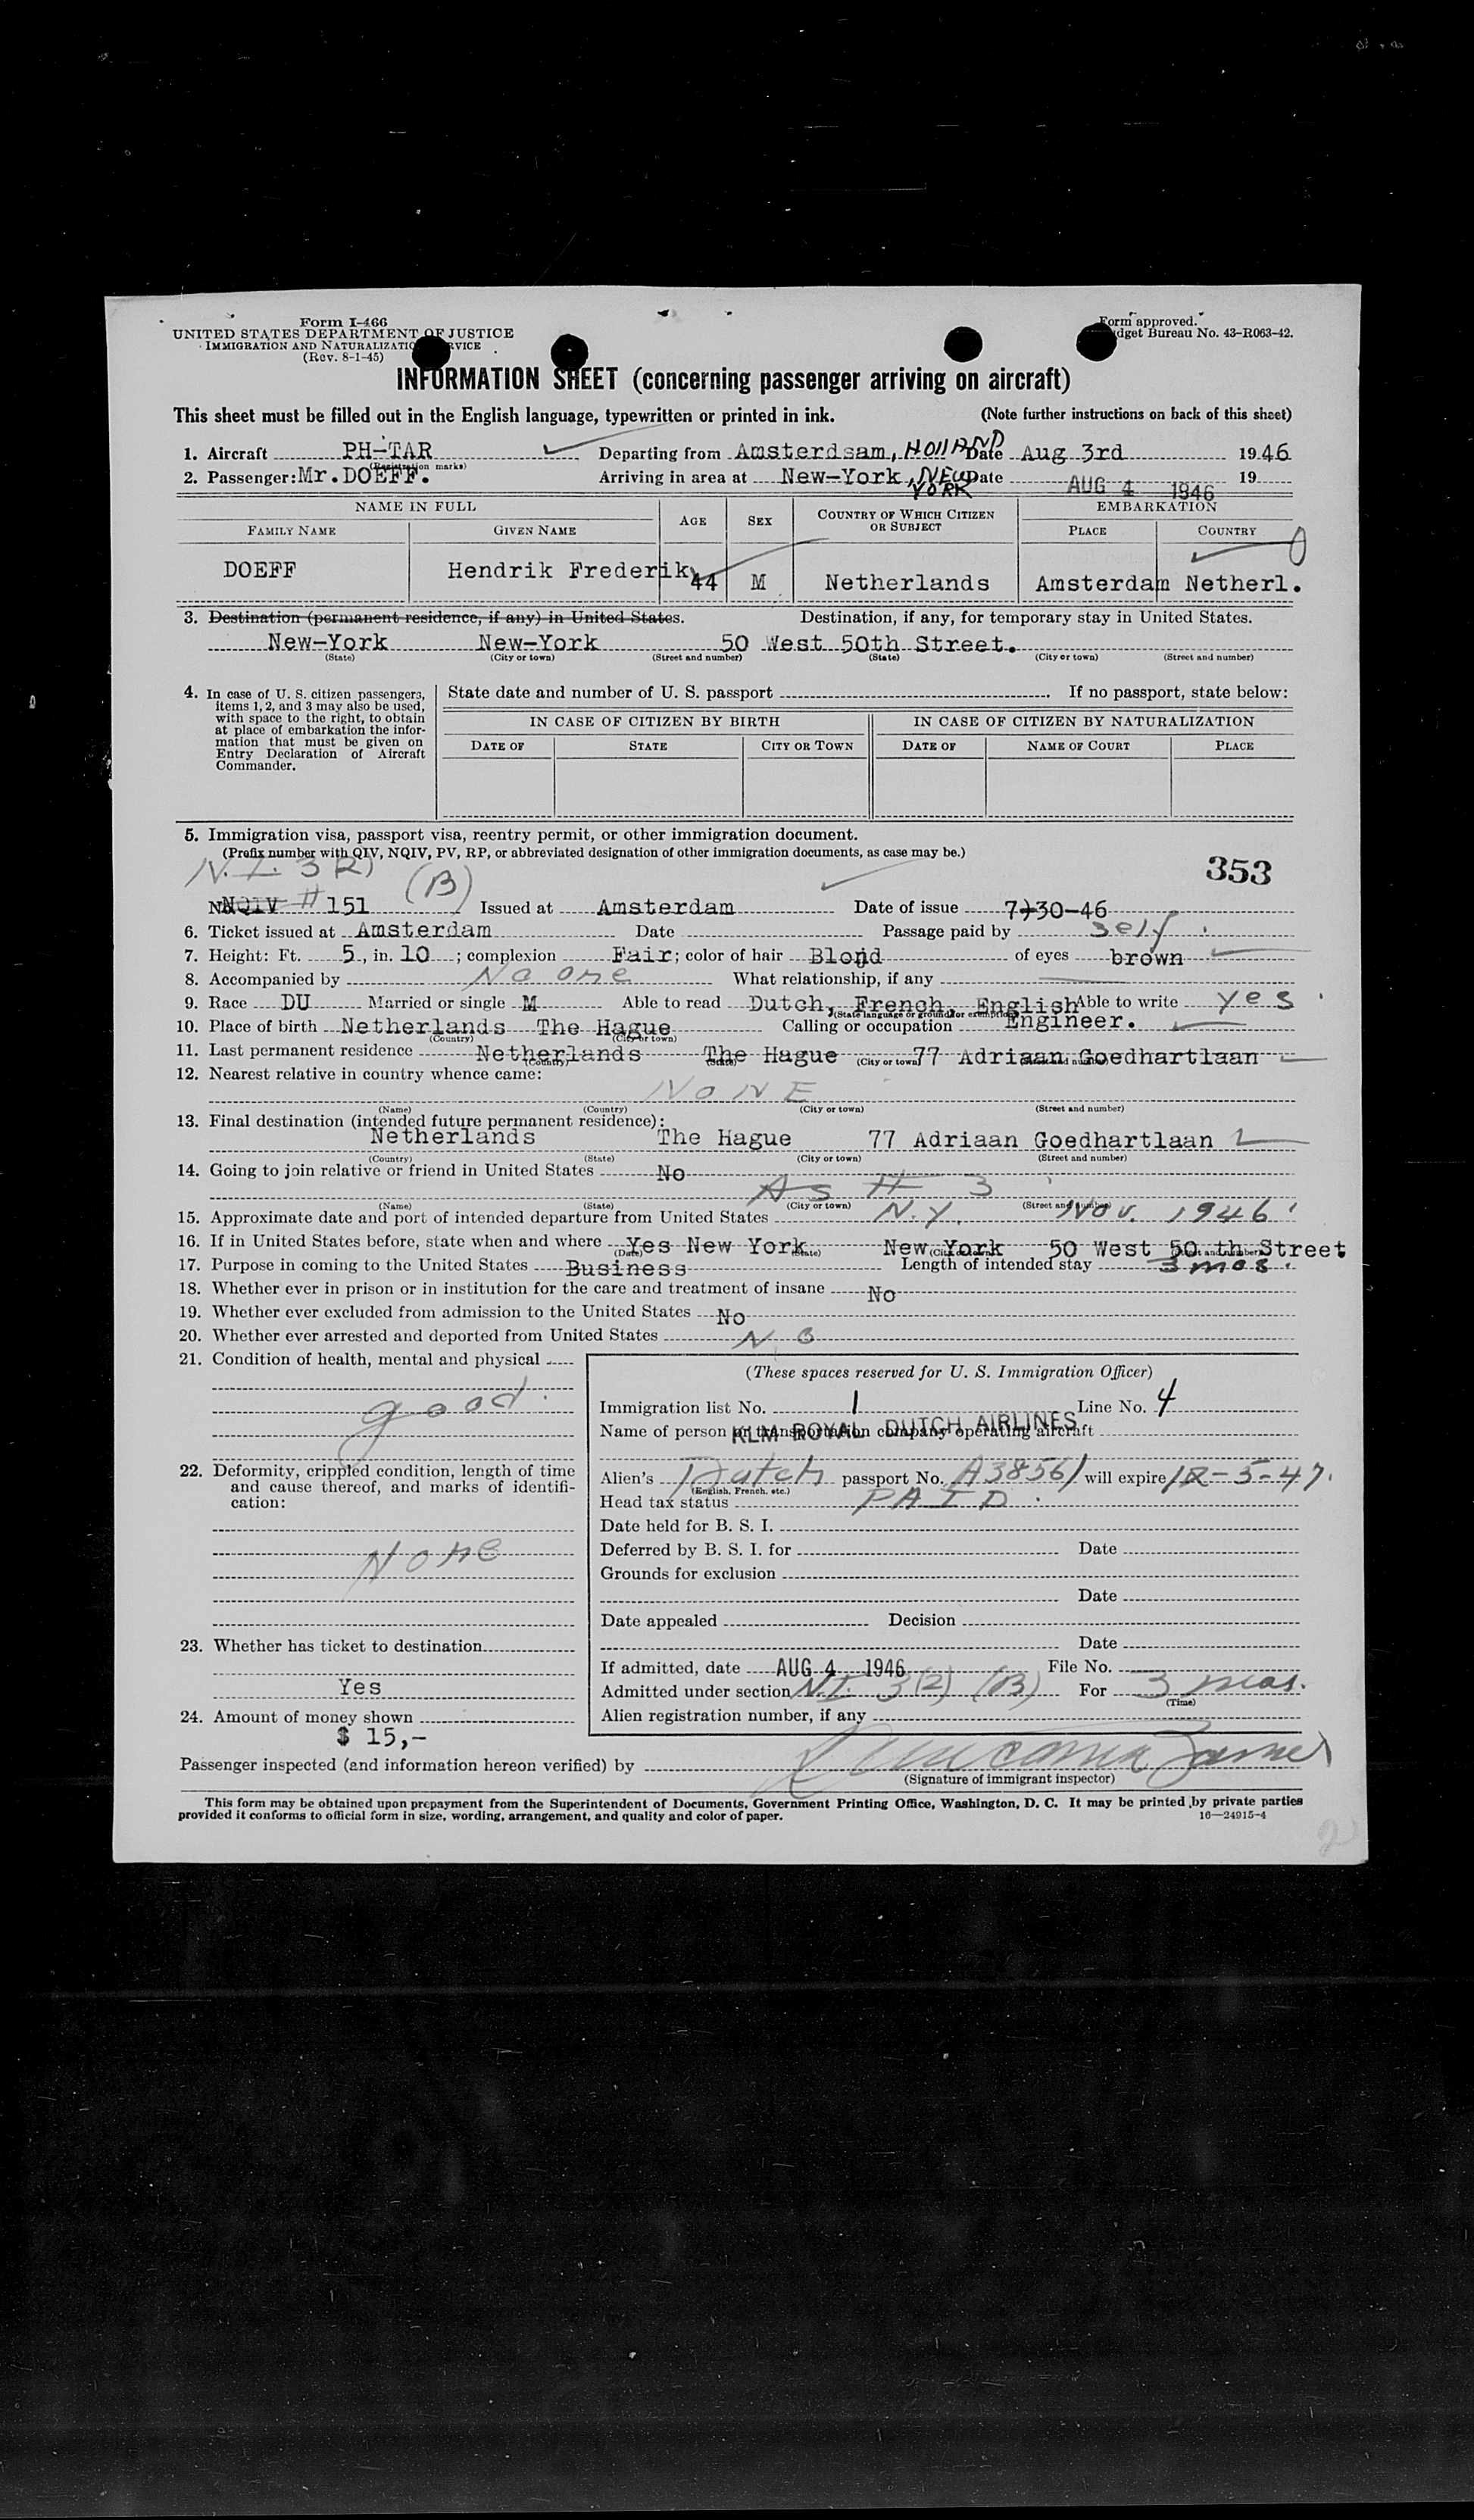 Form I-466
UNITED STATES DEPARTMENT OF JUSTICE
IMMIGRATION AND NATURALIZATION SERVICE
(Rev. 8-1-45)
Form approved.
Budget Bureau No. 43-R063-42.
INFORMATION SHEET (concerning passenger arriving on aircraft)
This sheet must be filled out in the English language, typewritten or printed in ink. (Note further instructions on back of this sheet)
1. Aircraft PH-TAR Departing from Amsterdsam, HOllAND Date Aug 3rd 1946
(Registration marks)
2. Passenger: Mr. DOEFF. Arriving in area at New-York, NEW YORK Date AUG 4 1946 19
NAME IN FULL AGE SEX COUNTRY OF WHICH CITIZEN OR SUBJECT EMBARKATION
FAMILY NAME GIVEN NAME PLACE COUNTRY
DOEFF Hendrik Frederik 44 M Netherlands Amsterdam Netherl.
3. Destination (permanent residence, if any) in United States. Destination, if any, for temporary stay in United States.
New-York New-York 50 West 50th Street.
(State) (City or town) (Street and number) (State) (City or town) (Street and number)
4. In case of U. S. citizen passengers, items 1, 2, and 3 may also be used, with space to the right, to obtain at place of embarkation the information that must be given on Entry Declaration of Aircraft Commander.
State date and number of U. S. passport If no passport, state below:
IN CASE OF CITIZEN BY BIRTH IN CASE OF CITIZEN BY NATURALIZATION
DATE OF STATE CITY OR TOWN DATE OF NAME OF COURT PLACE
5. Immigration visa, passport visa, reentry permit, or other immigration document.
(Prefix number with QIV, NQIV, PV, RP, or abbreviated designation of other immigration documents, as case may be.)
353
N. I. 3(2) (B)
NQIV # 151 Issued at Amsterdam Date of issue 7-30-46
6. Ticket issued at Amsterdam Date Passage paid by self.
7. Height: Ft. 5, in. 10; complexion Fair; color of hair Blond of eyes brown
8. Accompanied by No one What relationship, if any
9. Race DU Married or single M Able to read Dutch, French, English Able to write yes
(State language or ground for exemption)
10. Place of birth Netherlands The Hague Calling or occupation Engineer.
(Country) (City or town)
11. Last permanent residence Netherlands The Hague 77 Adriaan Goedhartlaan
(Country) (State) (City or town) (Street and number)
12. Nearest relative in country whence came:
NONE
(Name) (Country) (City or town) (Street and number)
13. Final destination (intended future permanent residence):
Netherlands The Hague 77 Adriaan Goedhartlaan
(Country) (State) (City or town) (Street and number)
14. Going to join relative or friend in United States No
As # 3
(Name) (State) (City or town) (Street and number)
15. Approximate date and port of intended departure from United States N.Y. Nov. 1946
16. If in United States before, state when and where Yes New York New York 50 West 50 th Street
(Date) (State) (City or town) (Street and number)
17. Purpose in coming to the United States Business Length of intended stay 3 mos.
18. Whether ever in prison or in institution for the care and treatment of insane No
19. Whether ever excluded from admission to the United States No
20. Whether ever arrested and deported from United States No
21. Condition of health, mental and physical
good
22. Deformity, crippled condition, length of time and cause thereof, and marks of identification:
None
23. Whether has ticket to destination
Yes
24. Amount of money shown
$ 15,-
(These spaces reserved for U. S. Immigration Officer)
Immigration list No. 1 Line No. 4
Name of person or transportation company operating aircraft KLM ROYAL DUTCH AIRLINES
Alien's Dutch passport No. A38561 will expire 12-5-47.
(English, French, etc.)
Head tax status PAID.
Date held for B. S. I.
Deferred by B. S. I. for Date
Grounds for exclusion
Date
Date appealed Decision
Date
If admitted, date AUG 4 1946 File No.
Admitted under section N.I. 3(2) (B) For 3 mos.
(Time)
Alien registration number, if any
Passenger inspected (and information hereon verified) by
(Signature of immigrant inspector)
This form may be obtained upon prepayment from the Superintendent of Documents, Government Printing Office, Washington, D. C. It may be printed by private parties
provided it conforms to official form in size, wording, arrangement, and quality and color of paper. 16—24915-4